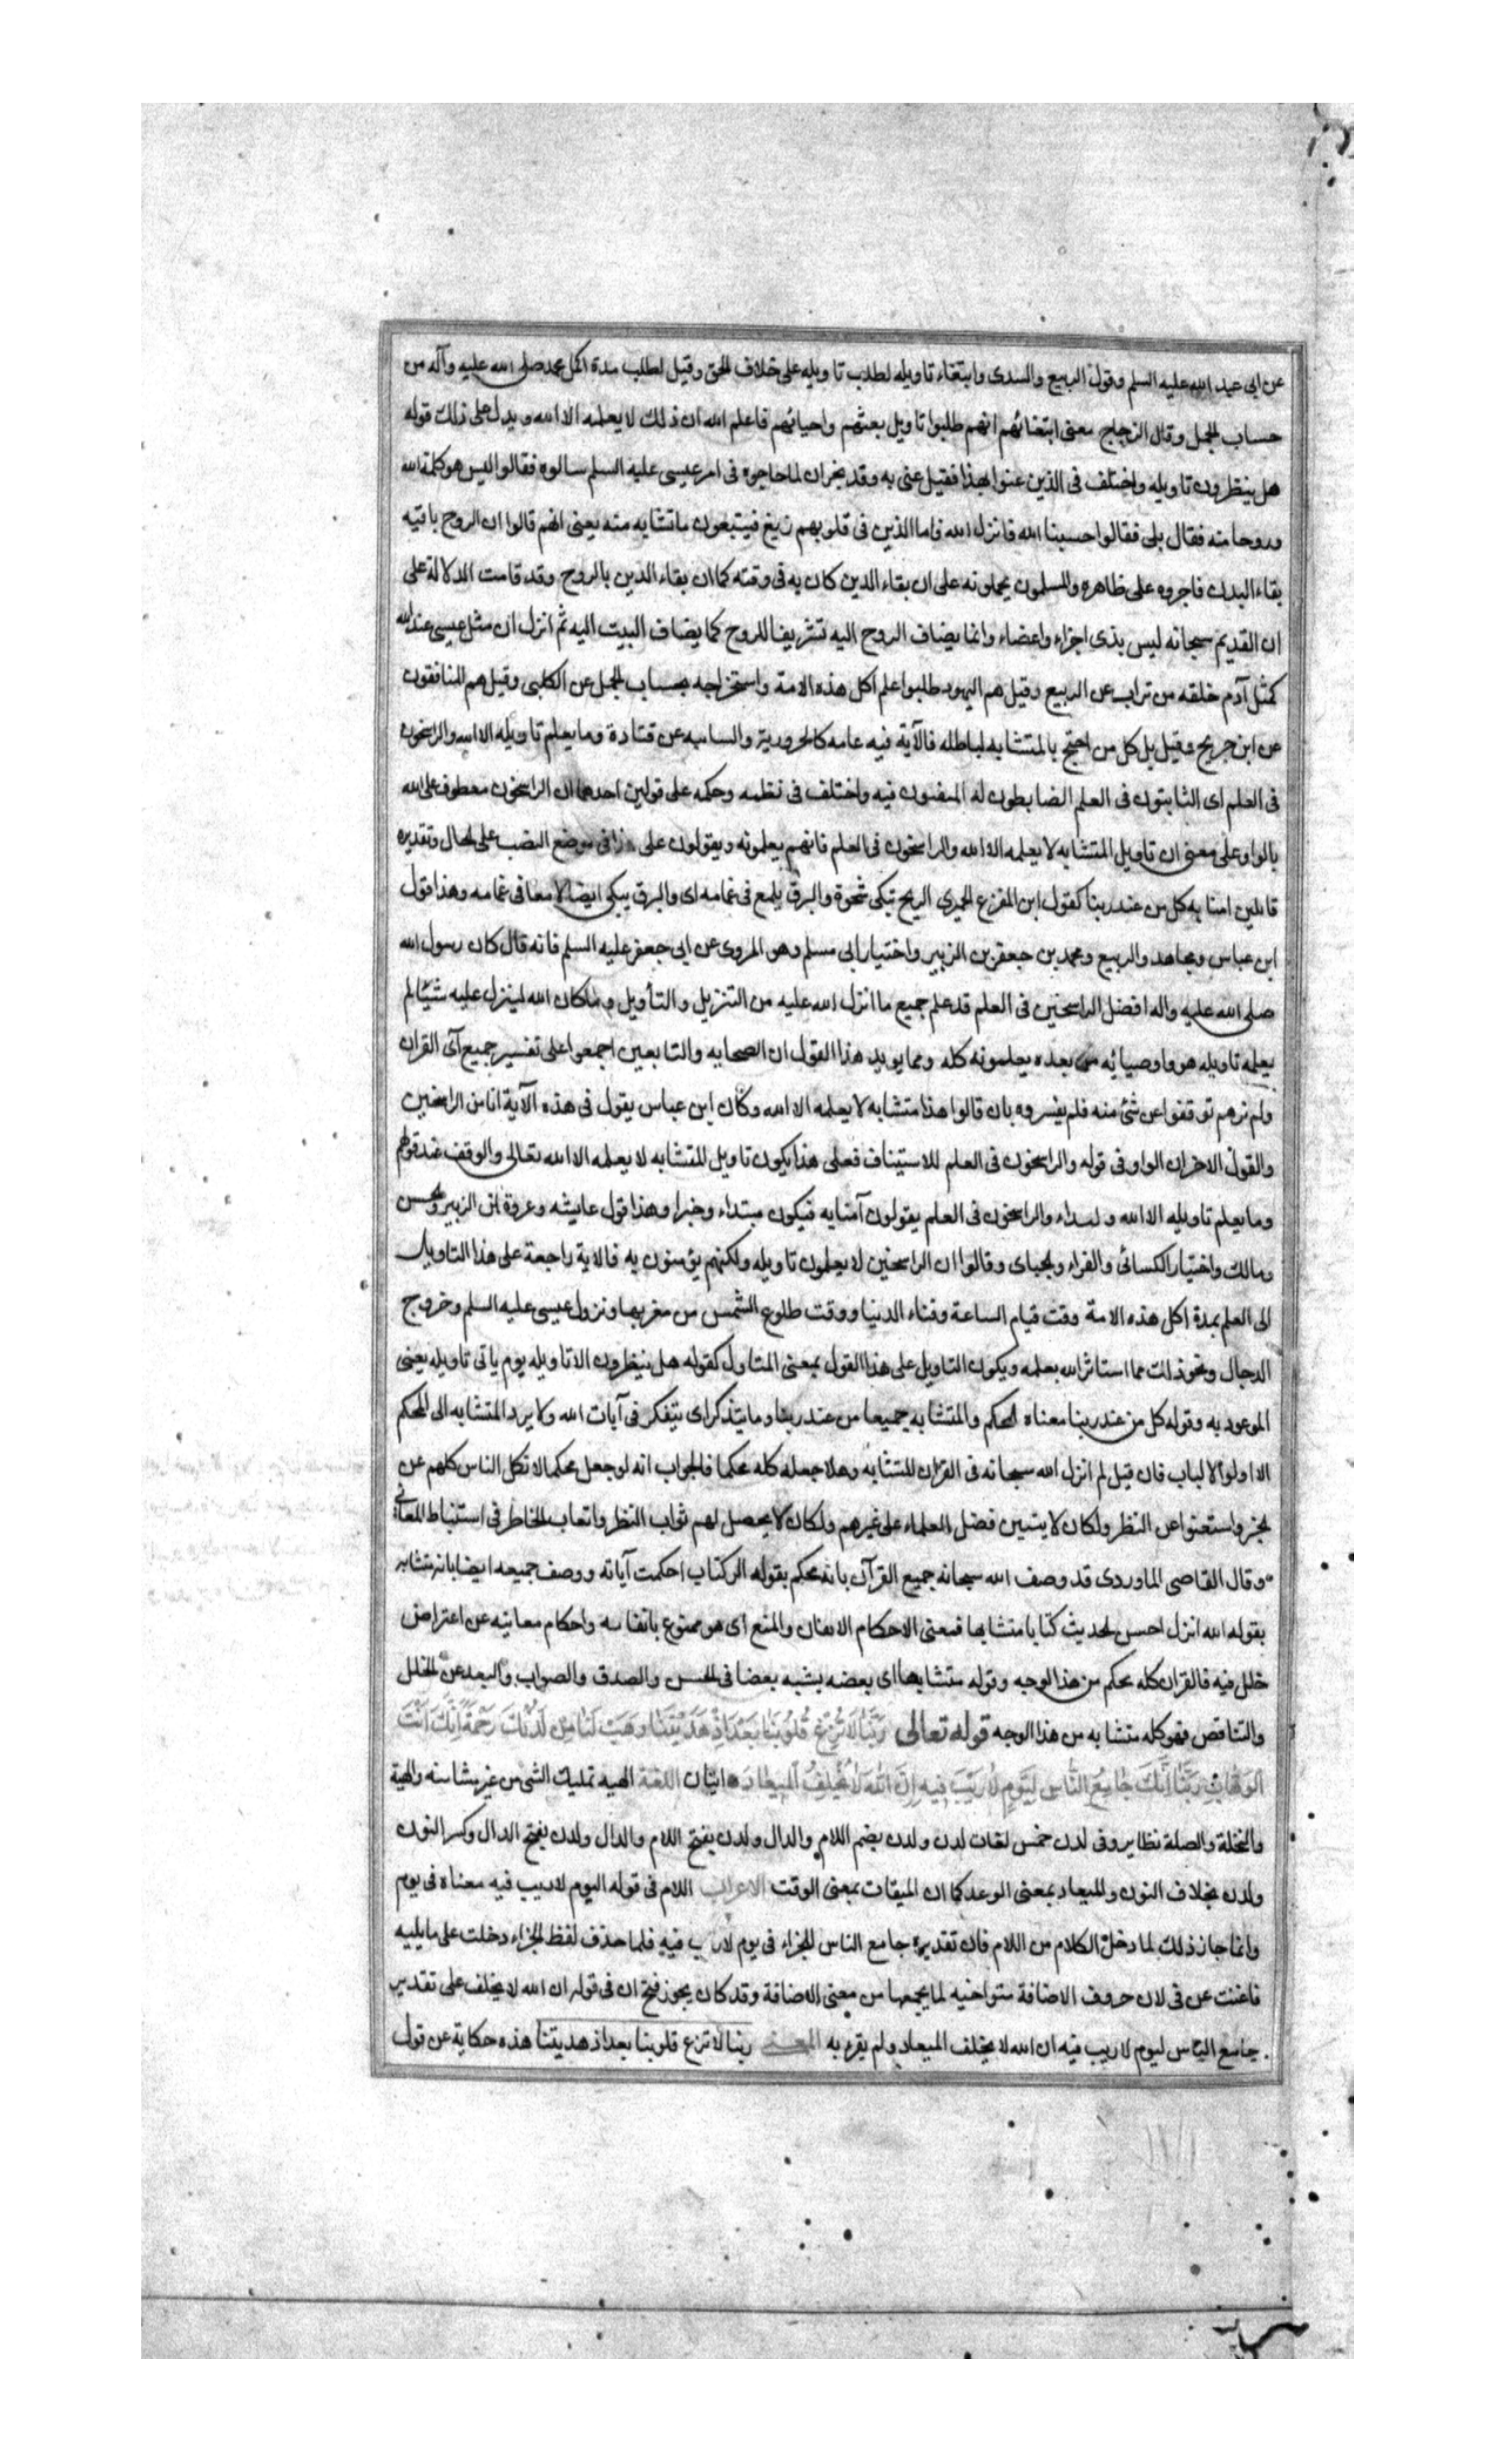 عن ابى عبد الله عليه السلم وقول الربيع والسدى وابتغاء تاويله لطلب تاويله على خلاف الحق وقيل لطلب مدة اكل محمد صلى الله عليه وآله من
حساب الجمل وقال الزجاج معنى ابتغائهم انهم طلبوا تاويل بعثهم واحيائهم فاعلم الله ان ذلك لا يعلمه الا الله ويدل على ذلك قوله
هل ينظرون تاويله واختلف فى الذين عنوا بهذا فقيل عنى به وفد نجران لما حاجوه فى امر عيسى عليه السلم سالوه فقالوا اليس هو كلمة الله
وروحا منه فقال بلى فقالوا حسبنا الله فانزل الله فاما الذين فى قلوبهم زيغ فيتبعون ما تشابه منه يعنى انهم قالوا ان الروح ما فيه
بقاء البدن فاجروه على ظاهره والمسلمون يحملونه على ان بقاء الدين كان به فى وقته كما ان بقاء الدين بالروح وقد قامت الدلالة على
ان القديم سبحانه ليس بذى اجزاء واعضاء وانما يضاف الروح اليه تشريفا للروح كما يضاف البيت اليه ثم انزل ان مثل عيسى عند الله
كمثل آدم خلقه من تراب عن الربيع وقيل هم اليهود طلبوا علم اكل هذه الامة واستخراجه بحساب الجمل عن الكلبى وقيل هم المنافقون
عن ابن جريج وقيل بل كل من احتج بالمتشابه لباطله فالآية فيه عامه كالحرورية والسابيه عن قتادة وما يعلم تاويله الا الله والراسخون
فى العلم اى الثابتون فى العلم الضابطون له المتقنون فيه واختلف فى نظمه وحكمه على قولين احدهما ان الراسخون معطوف على الله
بالواو على معنى ان تاويل المتشابه لا يعلمه الا الله والراسخون فى العلم فانهم يعلمونه ويقولون على هذا فى موضع النصب على الحال وتقديره
قايلين امنا به كل من عند ربنا كقول ابن المفرغ الحميرى الريح تبكى شجوة والبرق يلمع فى غمامه اى والبرق يبكى ايضا لامعا فى غمامه وهذا قول
ابن عباس ومجاهد والربيع ومحمد بن جعفر بن الزبير واختيار ابى مسلم وهو المروى عن ابى جعفر عليه السلم فانه قال كان رسول الله
صلى الله عليه واله افضل الراسخين فى العلم قد علم جميع ما انزل الله عليه من التنزيل والتأويل وما كان الله لينزل عليه شيئا لم
يعلمه تاويله هو واوصيائه من بعده يعلمونه كله ومما يويد هذا القول ان الصحابه والتابعين اجمعوا على تفسير جميع آى القران
ولم نرهم توقفوا عن شئ منه فلم يفسروه بان قالوا هذا متشابه لا يعلمه الا الله وكان ابن عباس يقول فى هذه الآية انا من الراسخين
والقول الاخر ان الواو فى قوله والراسخون فى العلم للاستيناف فعلى هذا يكون تاويل المتشابه لا يعلمه الا الله تعالى والوقف عند قولهم
وما يعلم تاويله الا الله و والراسخون فى العلم يقولون آمنا به فيكون مبتداء وخبرا وهذا قول عايشه وعروة ابن الزبير والحسن
ومالك واختيار الكسائى والفراء والجبائى وقالوا ان الراسخين لا يعلمون تاويله ولكنهم يؤمنون به فالاية راجعة على هذا التاويل
الى العلم بمدة اكل هذه الامة وقت قيام الساعة وفناء الدنيا ووقت طلوع الشمس من مغربها ونزول عيسى عليه السلم وخروج
الدجال ونحو ذلك مما استاثر الله بعلمه ويكون التاويل على هذا القول بمعنى المتاول كقوله هل ينظرون الا تاويله يوم ياتى تاويله يعنى
الموعود به وقوله كل من عند ربنا معناه المحكم والمتشابه جميعا من عند ربنا وما يتذكر اى يتفكر فى آيات الله ولا يرد المتشابه الى المحكم
الا اولوا الالباب فان قيل لم انزل الله سبحانه فى القران المتشابه وهلا جعله كله محكما فالجواب انه لو جعل محكما لاتكل الناس كلهم عن
الخبر واستغنوا عن النظر ولكان لا يتبين فضل العلماء على غيرهم ولكان لا يحصل لهم ثواب النظر واتعاب الخاطر فى استنباط المعانى
وقال القاصى الماوردى قد وصف الله سبحانه جميع القرآن بانه محكم بقوله الر كتاب احكمت آياته ووصف جميعه ايضا بانه متشابه
بقوله الله انزل احسن الحديث كتابا متشابها فمعنى الاحكام الاتقان والمنع اى هو ممنوع باتقانه واحكام معانيه عن اعتراض
خلل فيه فالقران كله محكم من هذا الوجه وقوله متشابها اى بعضه يشبه بعضا فى الحسن والصدق والصواب والبعد عن الخلل
والتناقص فهو كله متشابه من هذا الوجه قوله تعالى رَبَّنَا لَا تُزِغْ قُلُوبَنَا بَعْدَ اِذْ هَدَيْتَنَا وَهَبْ لَنَا مِنْ لَدُنْكَ رَحْمَةً اِنَّكَ اَنْتَ
الْوَهَّابُ رَبَّنَا اِنَّكَ جَامِعُ النَّاسِ لِيَوْمٍ لَا رَيْبَ فِيهِ اِنَّ اللهَ لَا يُخْلِفُ الْمِيعَادَ ايتان اللغة الهبه تمليك الشئ من غير مثامنه والهبة
والنحلة والصلة نظاير وفى لدن خمس لغات لدن ولدن بضم اللام والدال ولدن بفتح اللام والدال ولدن بفتح الدال وكسر النون
ولدن بخلاف النون والميعاد بمعنى الموعد كما ان الميقات بمعنى الوقت الاعراب اللام فى قوله اليوم لا ريب فيه معناه فى يوم
وانما جاز ذلك لما دخل الكلام من اللام فان تقديره جامع الناس للجزاء فى يوم لا ريب فيه فلما حذف لفظ الجزاء دخلت على ما يليه
فاغنت عن فى لان حروف الاضافة متواخيه لما يجمعها من معنى الاضافة وقد كان يجوز فتح ان فى قوله ان الله لا يخلف على تقدير
جامع الناس ليوم لا ريب فيه ان الله لا يخلف الميعاد ولم يقر به المعنى ربنا لا تزغ قلوبنا بعد اذ هديتنا هذه حكاية عن قول